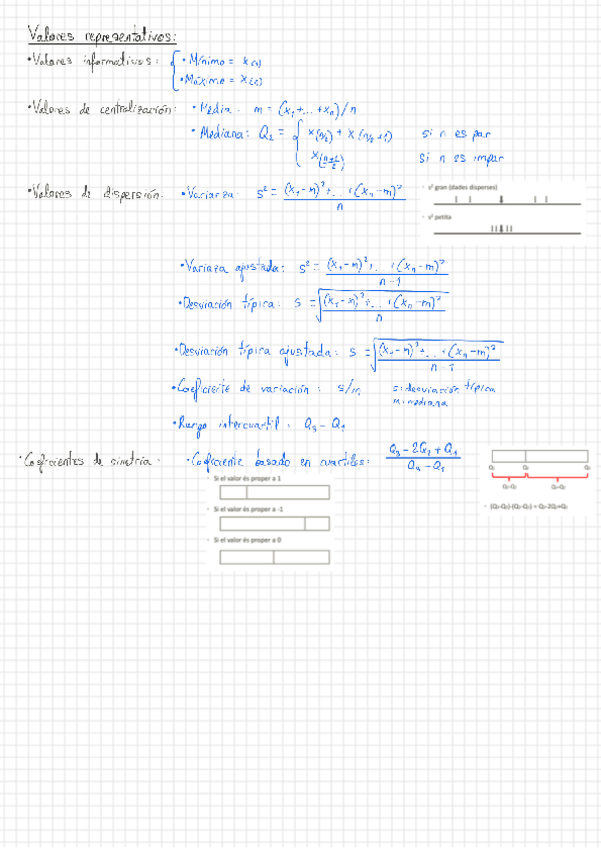 Valores representativos:
• Valores informativos: • Mínimo = x(1)
• Máximo = x(n)
• Valores de centralización: • Media: m = (x₁+...+xₙ)/n
• Mediana: Q₂ = x(n/2) + x(n/2+1) si n es par
x((n+1)/2) si n es impar
• Valores de dispersión: • Varianza: s² = (x₁-m)²+...+(xₙ-m)² / n
s² gran (dades disperses)
s² petita
• Variaza ajustada: s² = (x₁-m)²+...+(xₙ-m)² / n-1
• Desviación típica: s = √((x₁-m)²+...+(xₙ-m)² / n)
• Desviación típica ajustada: s = √((x₁-m)²+...+(xₙ-m)² / n-1)
• Coeficiente de variación: s/m s: desviación típica
m: mediana
• Rango intercuartil: Q₃ - Q₁
• Coeficientes de simetría: • Coeficiente basado en cuartiles: Q₃-2Q₂+Q₁ /
Si el valor és proper a 1
Si el valor és proper a -1
Si el valor és proper a 0
Q₁ Q₂ Q₃
Q₂-Q₁ Q₃-Q₂
(Q₃-Q₂)-(Q₂-Q₁) = Q₃-2Q₂+Q₁